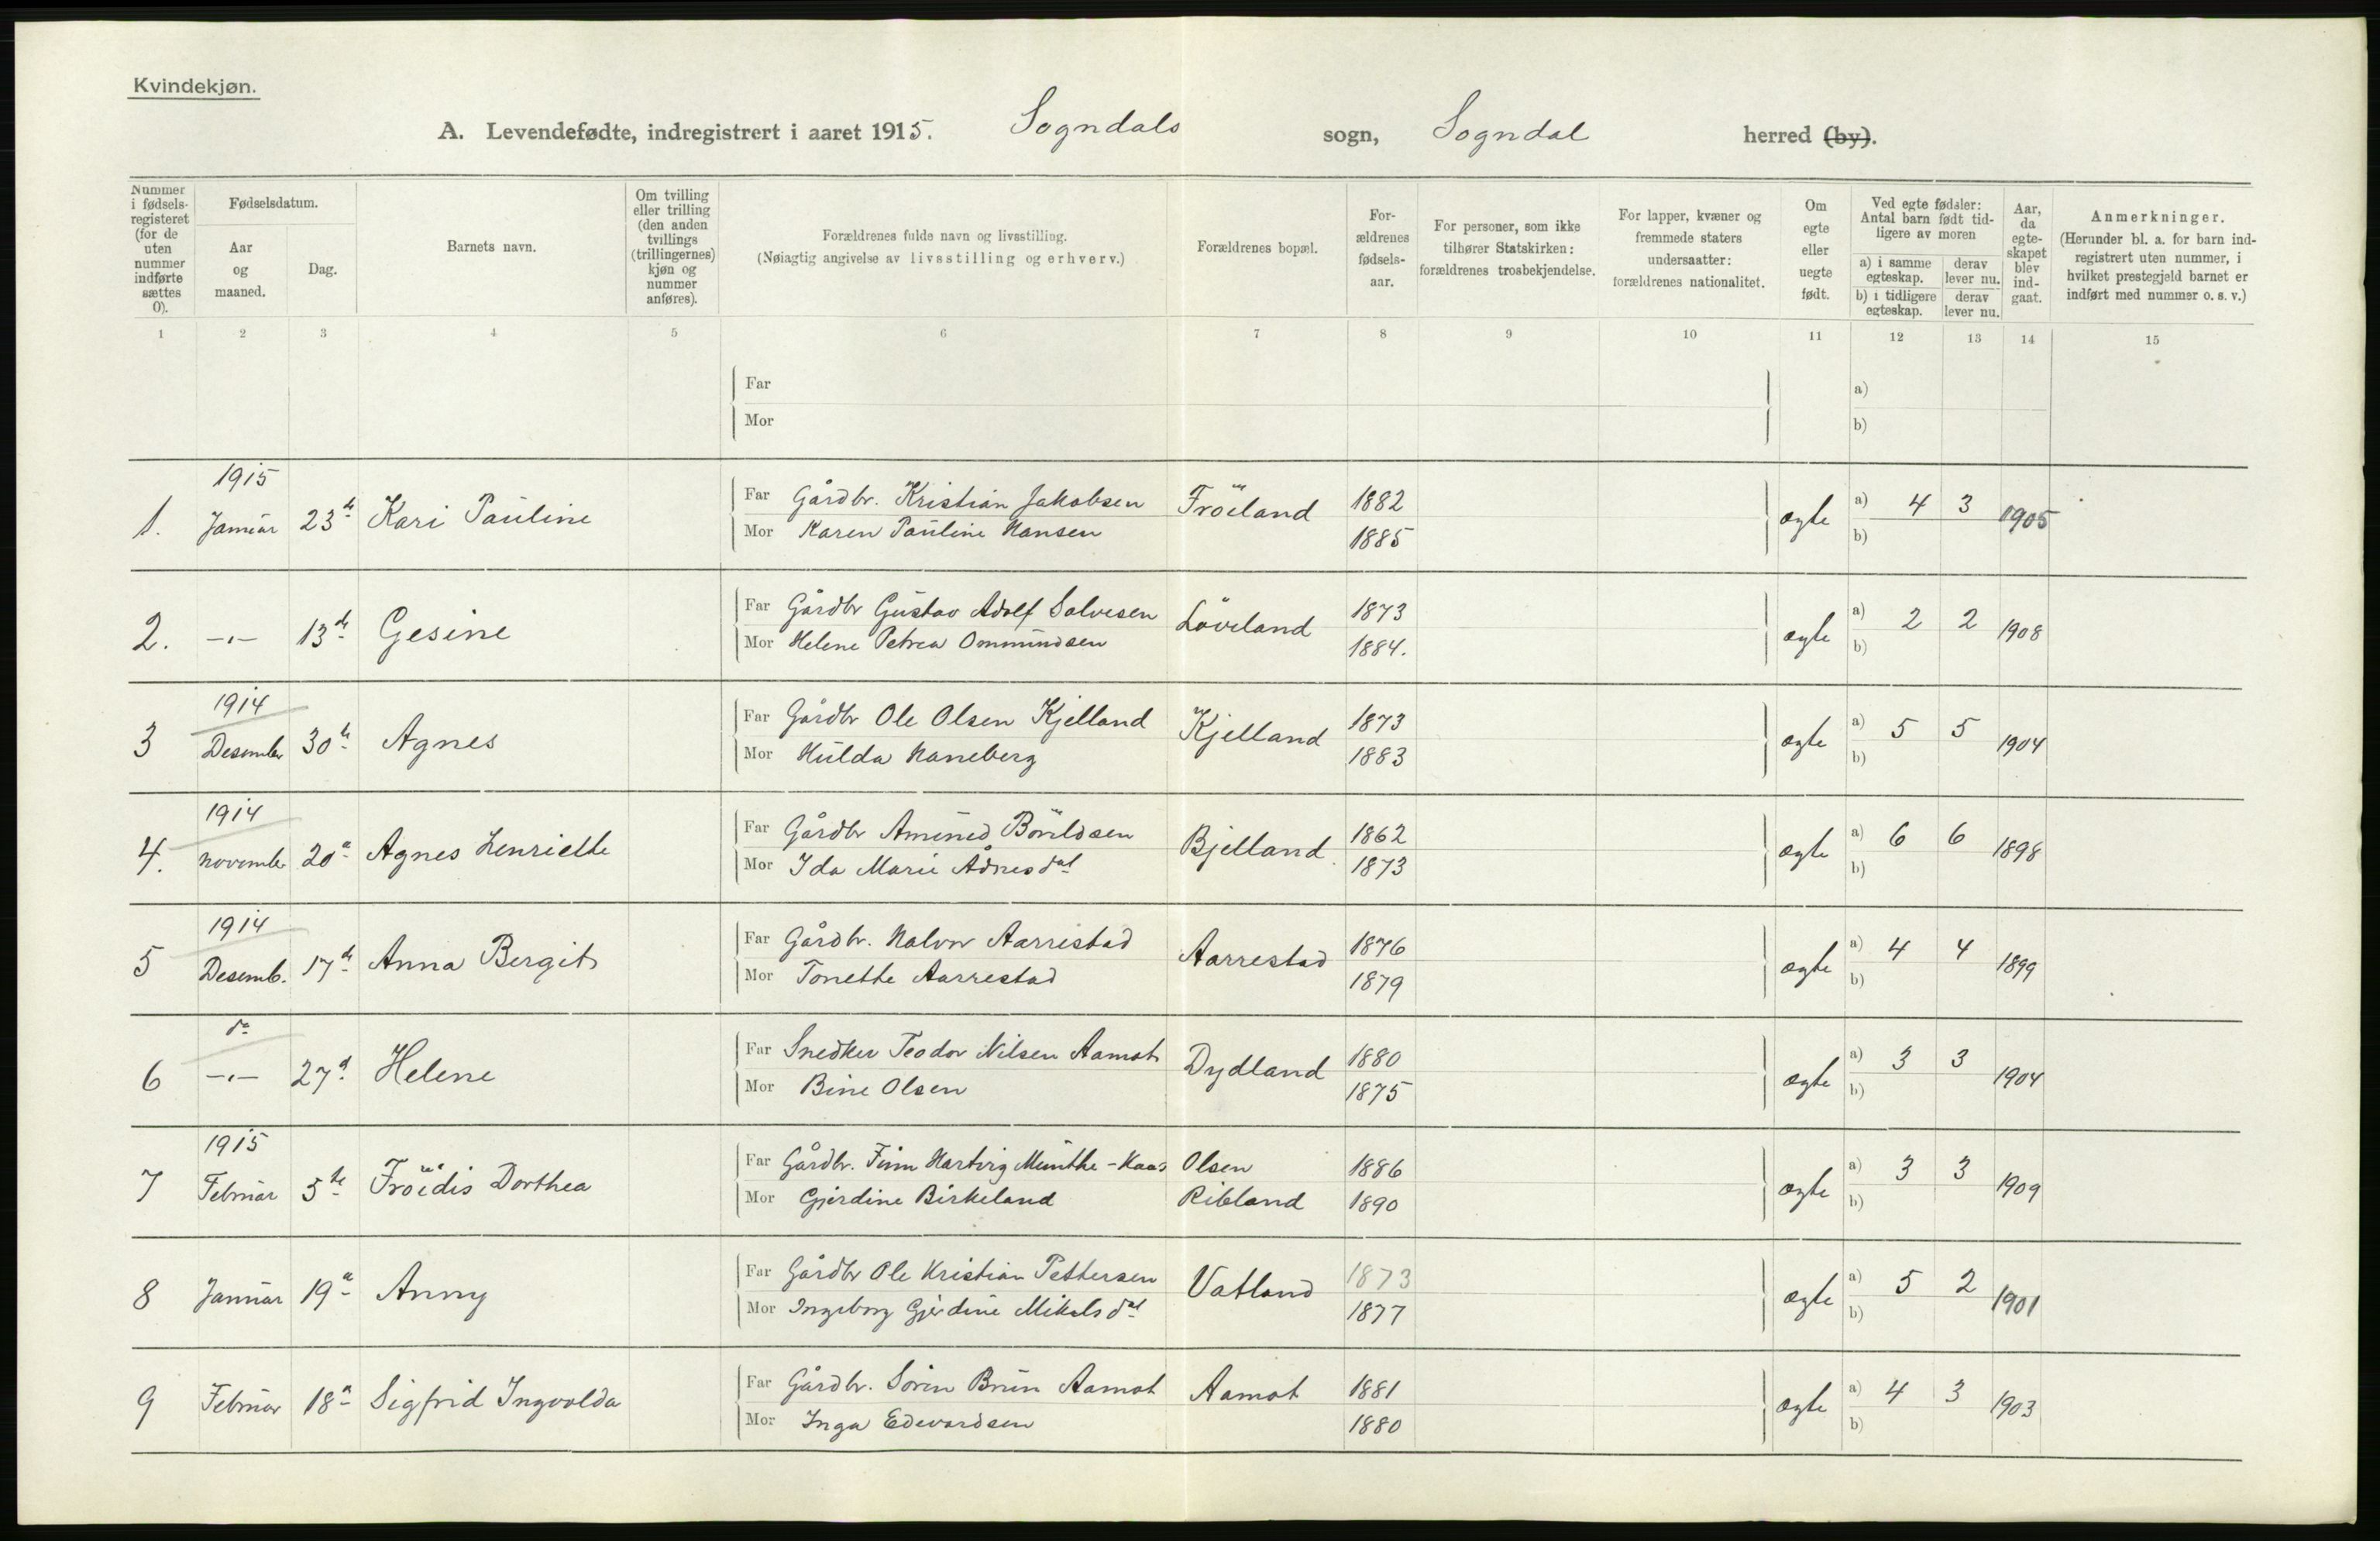 Kvindekjøn.
A. Levendefødte, indregistrert i aaret 1915. Sogndals sogn, Sogndal herred (by).
Nummer i fødselsregisteret (for de uten nummer indførte sættes 0).
Fødselsdatum.
Aar og maaned.
Dag.
Barnets navn.
Om tvilling eller trilling (den anden tvillings (trillingernes) kjøn og nummer anføres).
Forældrenes fulde navn og livsstilling.
(Nøiagtig angivelse av livsstilling og erhverv.)
Forældrenes bopæl.
Forældrenes fødselsaar.
For personer, som ikke tilhører Statskirken: forældrenes trosbekjendelse.
For lapper, kvæner og fremmede staters undersaatter: forældrenes nationalitet.
Om egte eller uegte født.
Ved egte fødsler: Antal barn født tidligere av moren
a) i samme egteskap. derav lever nu.
b) i tidligere egteskap. derav lever nu.
Aar, da egteskapet blev indgaat.
Anmerkninger.
(Herunder bl. a. for barn indregistrert uten nummer, i hvilket prestegjeld barnet er indført med nummer o. s. v.)
1 2 3 4 5 6 7 8 9 10 11 12 13 14 15
Far a)
Mor b)
1915
1. Januar 23de Kari Pauline Far Gårdbr. Kristian Jakobsen Fröiland 1882 ægte a) 4 3 1905
Mor Karen Pauline Hansen 1885 b)
2. -"- 13de Gesine Far Gårdbr Gustav Adolf Salvesen Löveland 1873 ægte a) 2 2 1908
Mor Helene Petrea Ommundsen 1884. b)
1914
3 Desember 30te Agnes Far Gårdbr Ole Olsen Kjelland Kjelland 1873 ægte a) 5 5 1904
Mor Hulda Haneberg 1883 b)
1914
4. november 20de Agnes Henriette Far Gårdbr Amund Bårdsen Bjelland 1862 ægte a) 6 6 1898
Mor Ida Marie Ådnesdat 1873 b)
1914
5 Desemb. 17de Anna Bergit Far Gårdbr. Halvor Aarrestad Aarrestad 1876 ægte a) 4 4 1899
Mor Tonette Aarrestad 1879 b)
do
6 -"- 27de Helene Far Snedker Teodor Nilsen Aamot Dydland 1880 ægte a) 3 3 1904
Mor Bine Olsen 1875 b)
1915
7 Februar 5te Fröidis Dorthea Far Gårdbr. Finn Hartvig Munthe-Kaas Olsen 1886 ægte a) 3 3 1909
Mor Gjerdine Birkeland Ribland 1890 b)
8 Januar 19de Anny Far Gårdbr Ole Kristian Pettersen Vatland 1873 ægte a) 5 2 1901
Mor Ingeborg Gjerdine Mikalsdat 1877 b)
9 Februar 18de Sigfrid Ingvolda Far Gårdbr. Sören Brun Aamot Aamot 1881 ægte a) 4 3 1903
Mor Inga Edvardsen 1880 b)